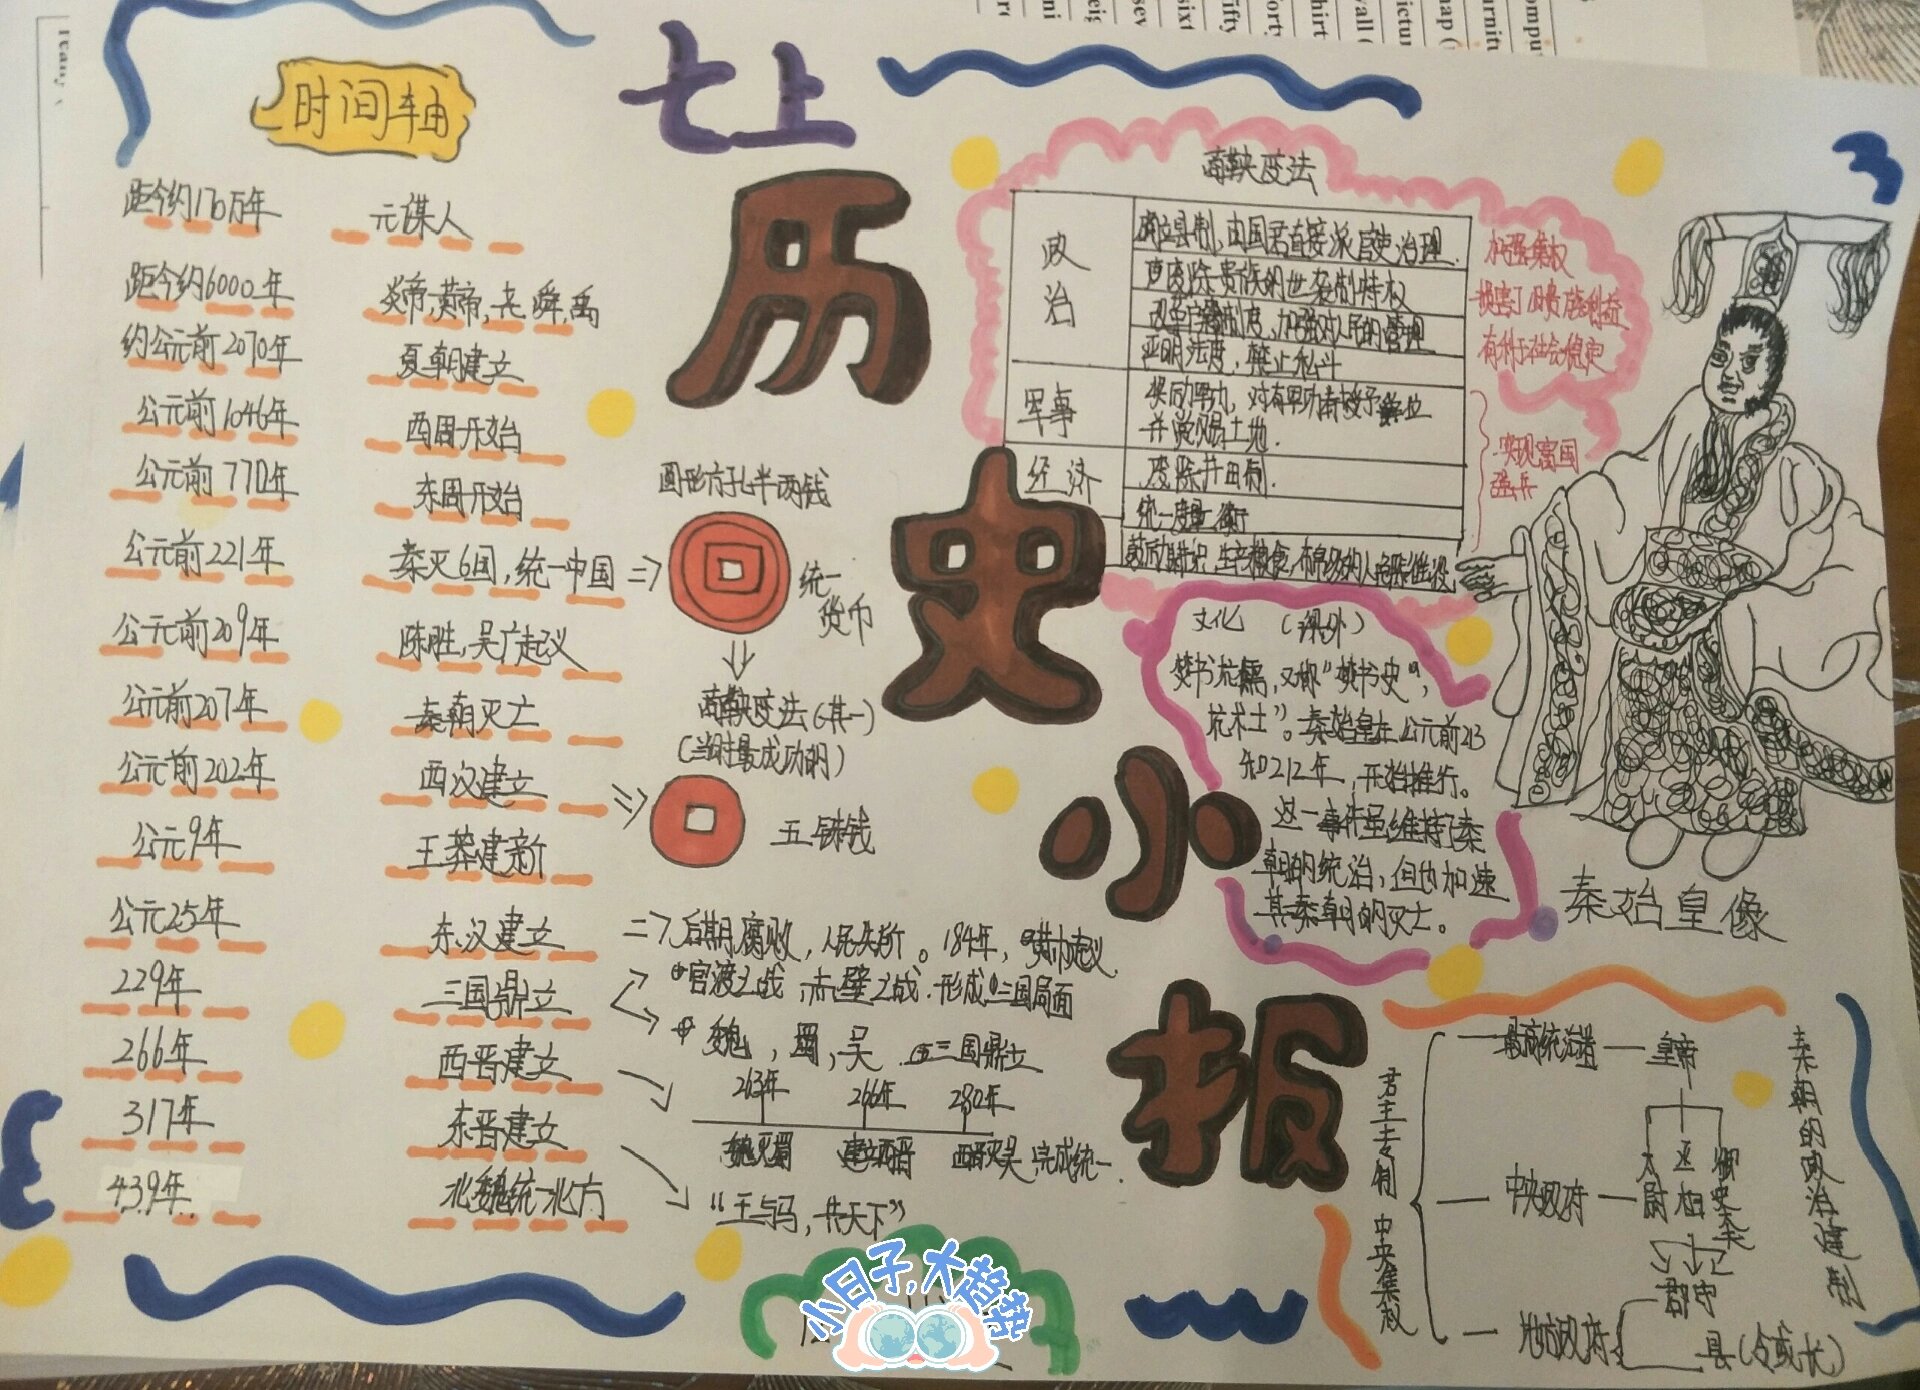 七上
历史小报
时间轴
距今约170万年 元谋人
距今约6000年 炎帝,黄帝,尧,舜,禹
约公元前2070年 夏朝建立
公元前1046年 西周开始
公元前770年 东周开始
公元前221年 秦灭6国,统一中国
公元前209年 陈胜,吴广起义
公元前207年 秦朝灭亡
公元前202年 西汉建立
公元9年 王莽建新
公元25年 东汉建立
229年 三国鼎立
266年 西晋建立
317年 东晋建立
439年 北魏统一北方
圆形方孔半两钱
统一
货币
商鞅变法(其一)
(当时最成功的)
五铢钱
后期腐败,人民失所。184年,黄巾起义
官渡之战,赤壁之战.形成三国局面
魏,蜀,吴 三国鼎立
263年 266年 280年
魏灭蜀 建立西晋 西晋灭吴 完成统一.
“王与马,共天下”
商鞅变法
政治
确立县制,由国君直接派官吏治理.
废除贵族的世袭制特权
改革户籍制度,加强对人民的管理
严明法度,禁止私斗
加强集权
损害了旧贵族利益
有利于社会稳定
军事
奖励军功,对有军功者授予爵位
并赏赐土地.
经济
废除井田制.
统一度量衡
鼓励耕织,生产粮食,布帛多的人免除徭役
实现富国
强兵
文化 (课外)
焚书坑儒,又称“焚书史”,
坑术士”。秦始皇在公元前213
和212年,开始推行。
这一事件虽维持了秦
朝的统治,但也加速
其秦朝的灭亡。
秦始皇像
秦朝的政治建制
君主专制 中央集权
最高统治者 皇帝
中央政府 太尉 丞相 御史大夫
郡守
地方政府 县(令或长)
小日子,大趋势